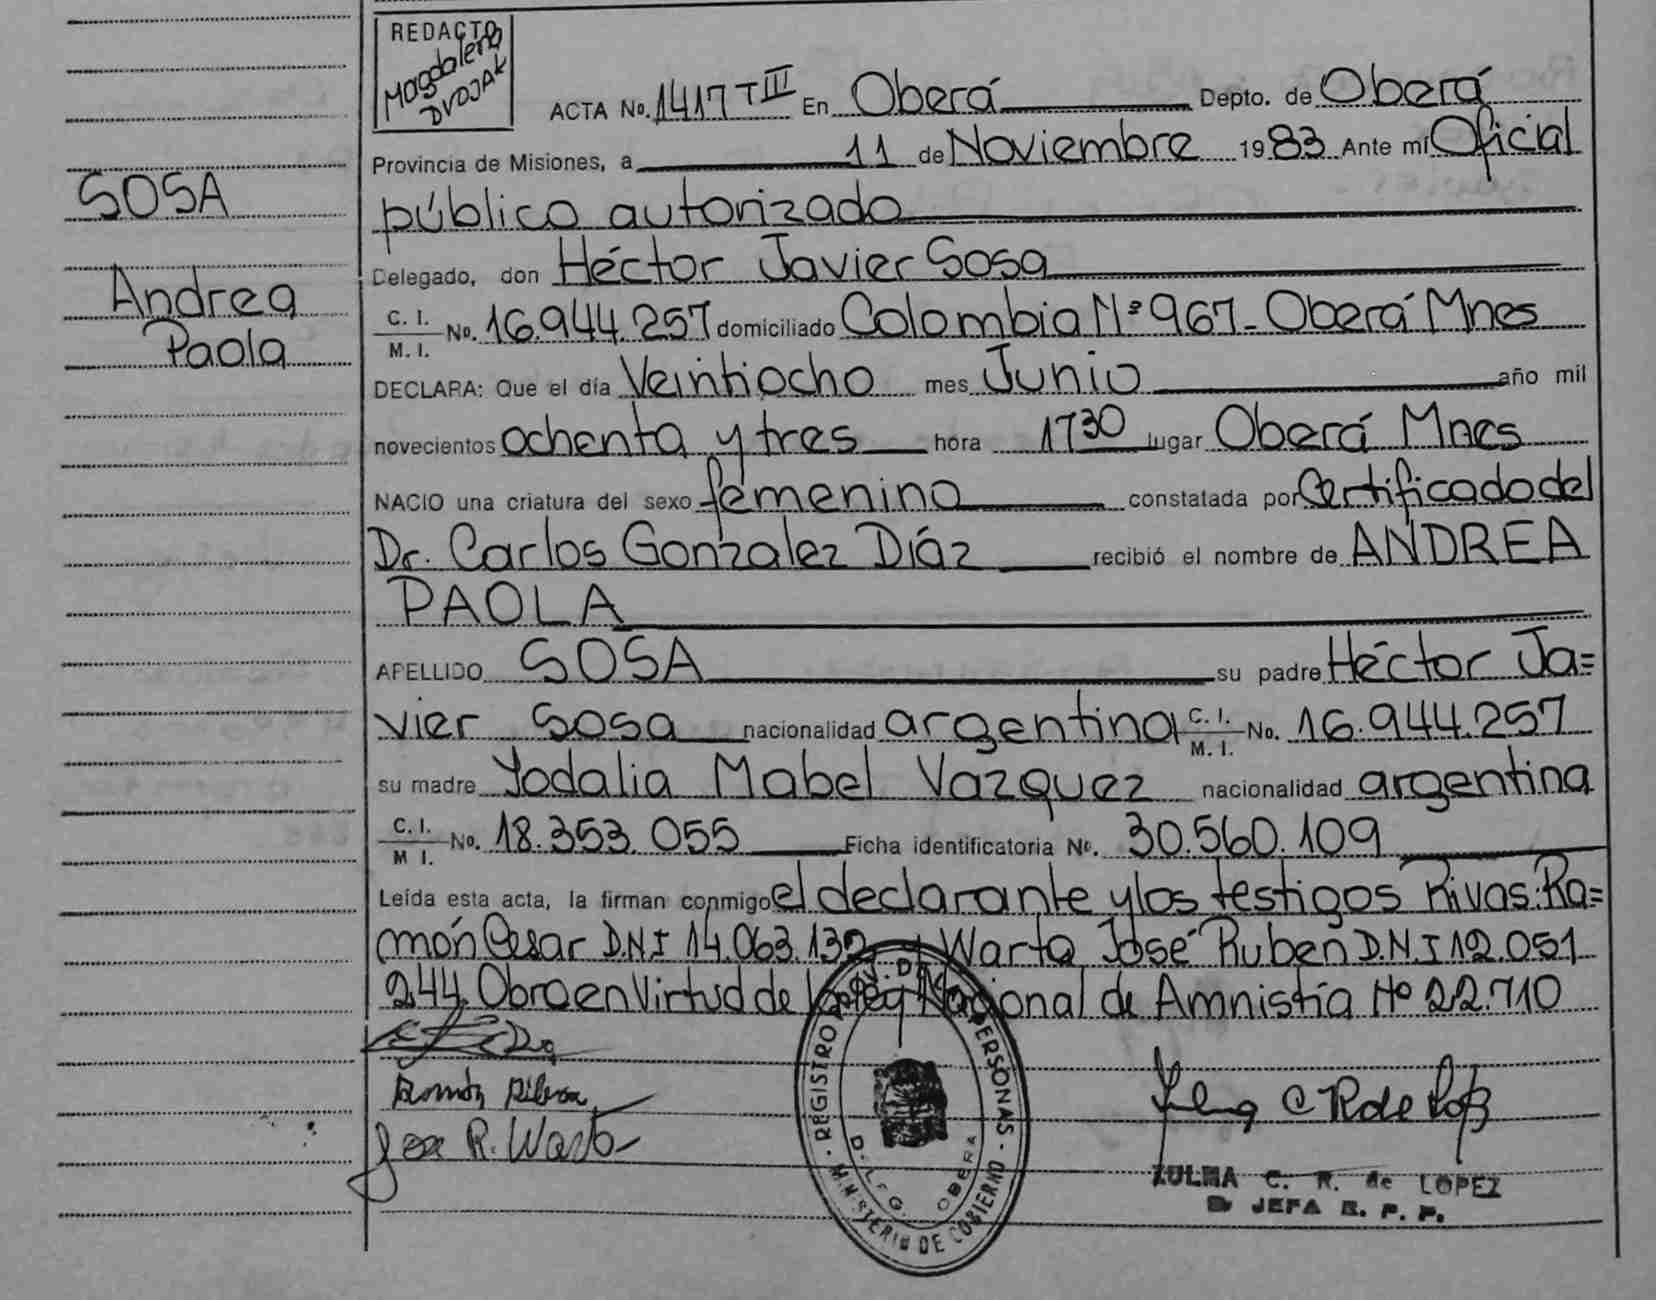 REDACTO
Magdalena
DVOJAK
ACTA No. 1417 T III En Oberá Depto. de Oberá
Provincia de Misiones, a 11 de Noviembre 1983 Ante mí Oficial
público autorizado
SOSA
Delegado, don Héctor Javier Sosa
Andrea
C. I.
M. I. No. 16.944.257 domiciliado Colombia Nº 967- Oberá Mnes
Paola
DECLARA: Que el día Veintiocho mes Junio año mil
novecientos ochenta y tres hora 1730 lugar Oberá Mnes
NACIO una criatura del sexo femenino constatada por Certificado del
Dr. Carlos Gonzalez Diáz recibió el nombre de ANDREA
PAOLA
APELLIDO SOSA su padre Héctor Ja=
vier Sosa nacionalidad argentina C. I. M. I. No. 16.944.257
su madre Yodalia Mabel Vazquez nacionalidad argentina
C. I.
M I. No. 18.353.055 Ficha identificatoria Nº. 30.560.109
Leída esta acta, la firman conmigo el declarante y los testigos Rivas: Ra=
món Cesar D.N.I 14.063.132 y Warta José Ruben D.N.I 12.051
244. Obro en Virtud de la Ley Nacional de Amnistía Nº 22.710
Ramón
José R. Warta
REGISTRO PROV. DE LAS PERSONAS - MINISTERIO DE GOBIERNO
DELEG. OBERA
ZULMA C. R. de LOPEZ
JEFA R. P. P.